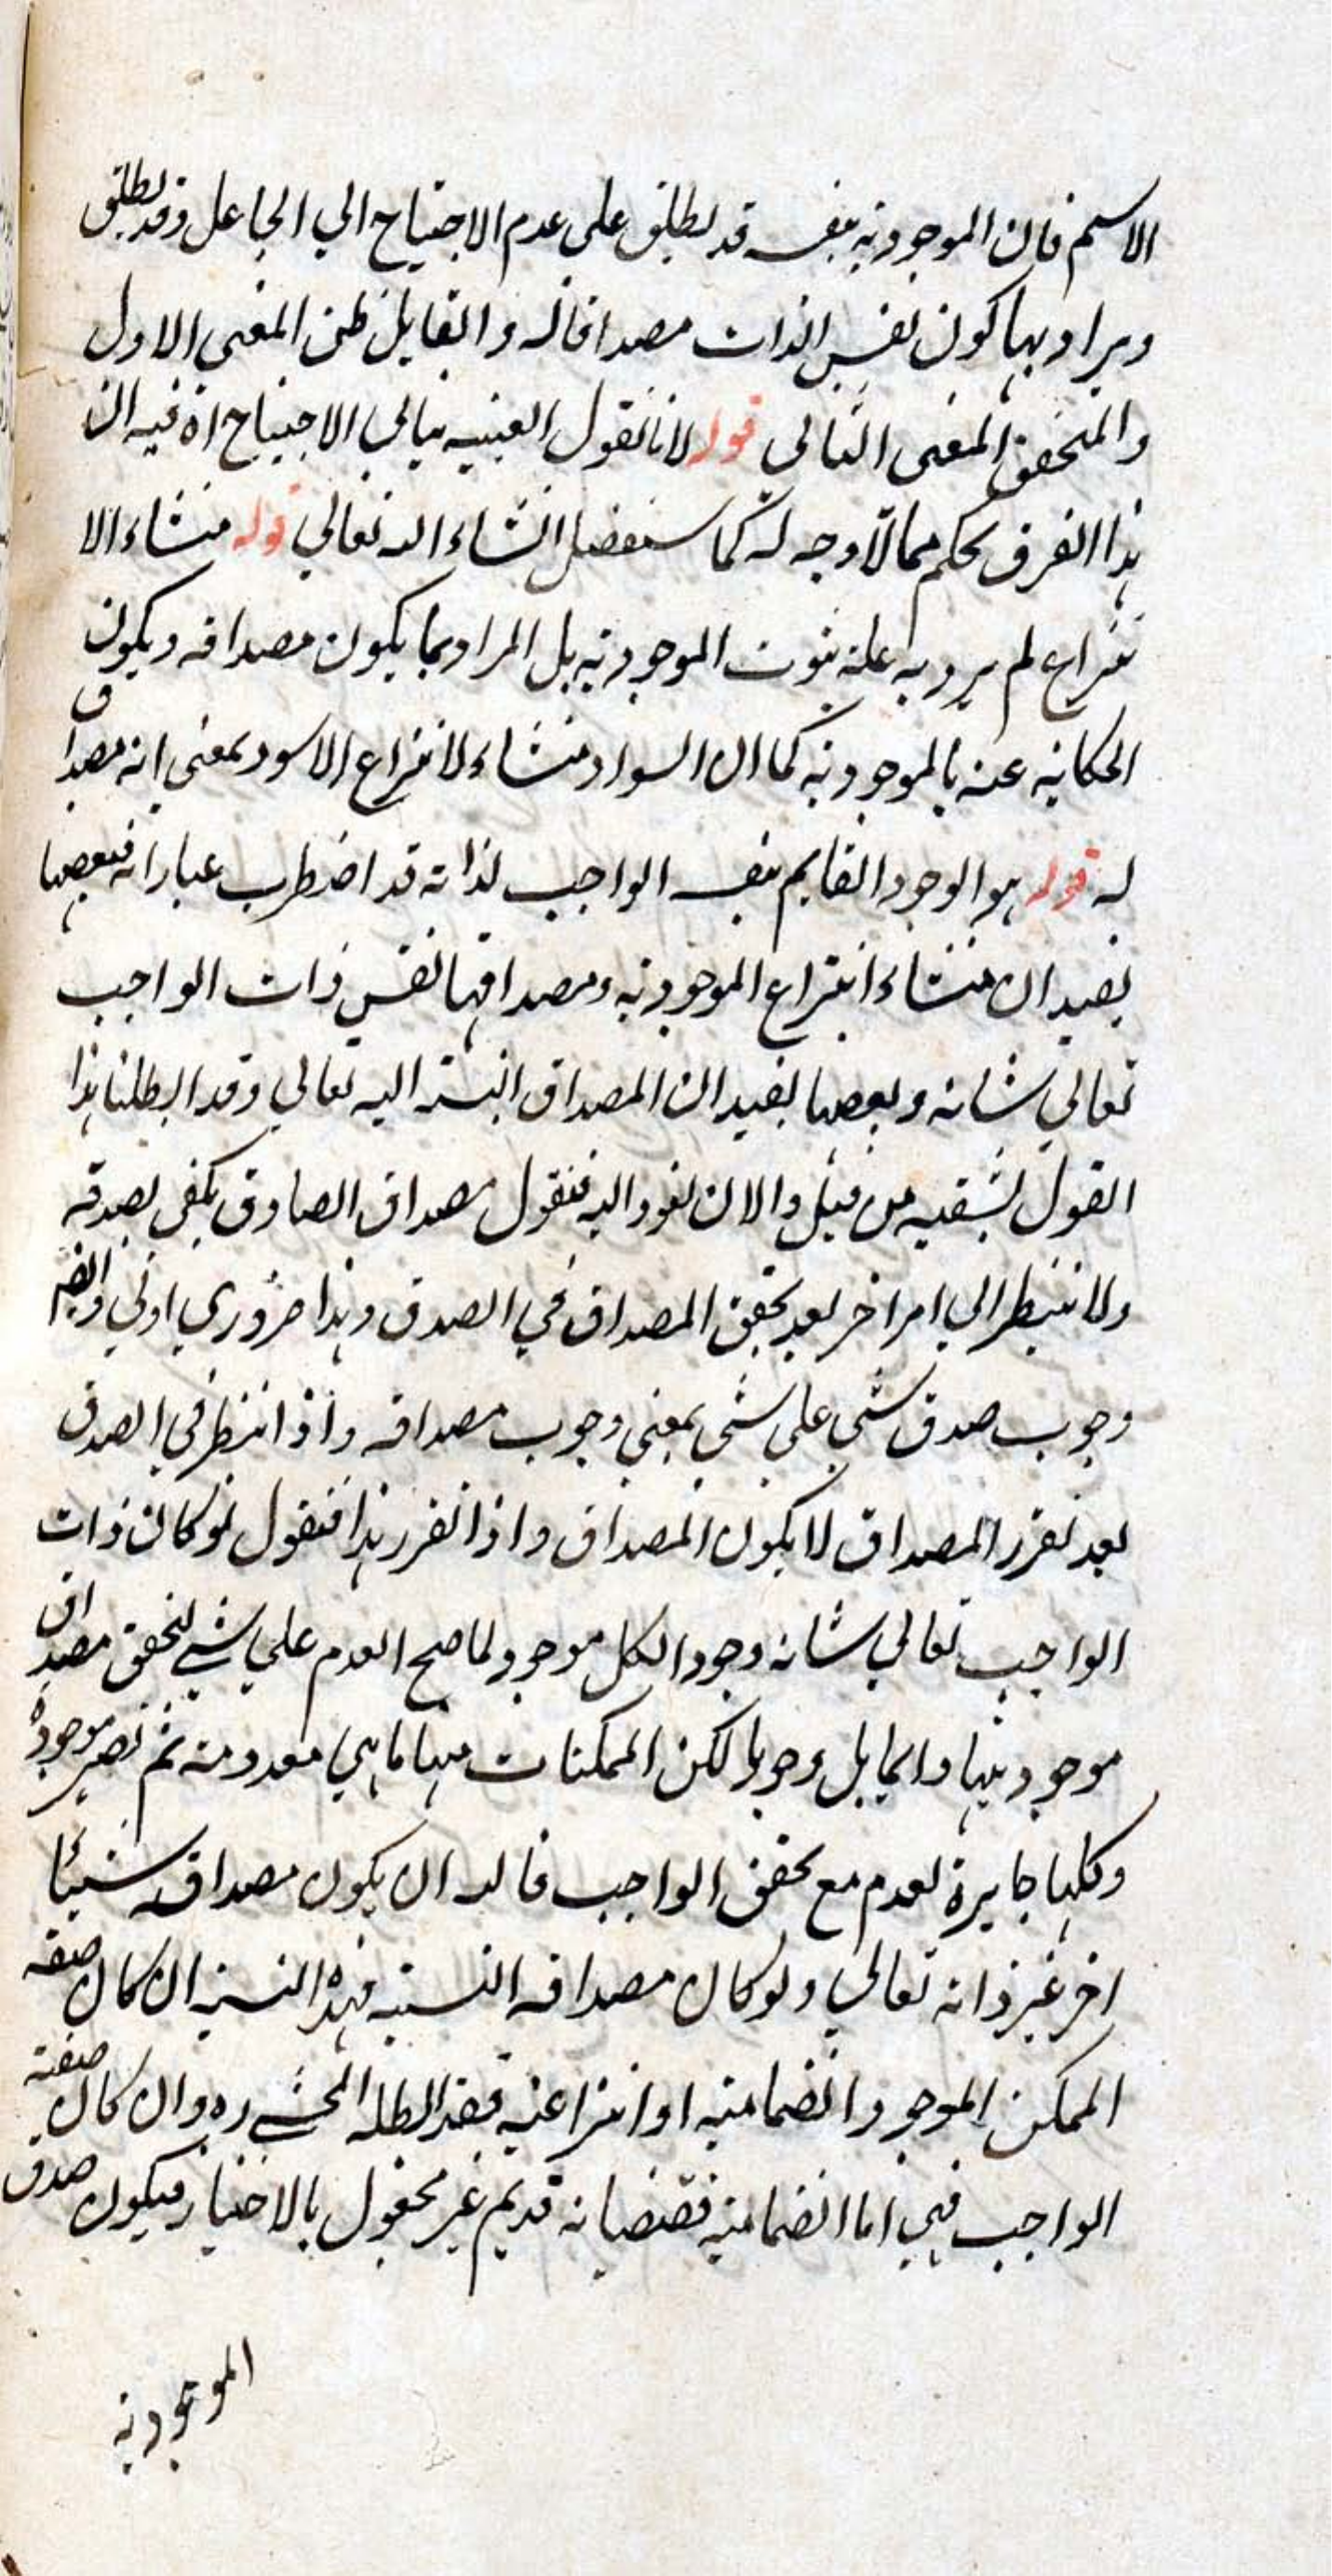 الاسم فان الموجودية بنفسه قد يطلق على عدم الاحتياج الي الجاعل وقد يطلق
ويراد بها كون نفس الذات مصداقا له والقايل ظن المعنى الاول
والمتحقق المعنى الثاني قوله لانا نقول العينية ينافي الاحتياج اه فيه ان
هذا الفرق تحكم مما لا وجه له كما سنفصل انشاء الله تعالي قوله منشاء الا
نتزاع لم يرد به علة ثبوت الموجودية بل المراد بما يكون مصداقه ويكون
الحكاية عنه بالموجودية كما ان السواد منشاء لانتزاع الاسود بمعنى انه مصداق
له قوله هو الوجود القايم بنفسه الواجب لذاته قد اضطرب عباراته فبعضها
يفيد ان منشاء انتزاع الموجودية ومصداقها نفس ذات الواجب
تعالي شانه وبعضها يفيد ان المصداق النسبة اليه تعالي وقد ابطلنا هذا
القول بشقيه من قبل والان نعود اليه فنقول مصداق الصادق يكفى لصدقه
ولا ينتظر الي امر اخر بعد تحقق المصداق في الصدق وهذا ضروري اولي وايضا
وجوب صدق شي على شي بمعني وجوب مصداقه واذا انتظر في الصدق
بعد تقرر المصداق لا يكون المصداق واذا تقرر هذا فنقول لو كان ذات
الواجب تعالي شانه وجود الكل موجود لما صح العدم علي شي لتحقق مصداق
موجوديتها دايما بل وجوبا لكن الممكنات منها ما هي معدومة ثم تصير موجودة
وكلها جايزة لعدم مع تحقق الواجب فالله ان يكون مصداقه شيئا
اخر غير ذاته تعالي ولو كان مصداقه النسبة فهذه النسبة ان كان صفة
الممكن الموجود انضمامية او انتزاعية فقد ابطله المحشي ره وان كان صفة
الواجب فهي اما انضمامية فقضيانه قديم غير مجعول بالاختيار فيكون صدق
الموجودية